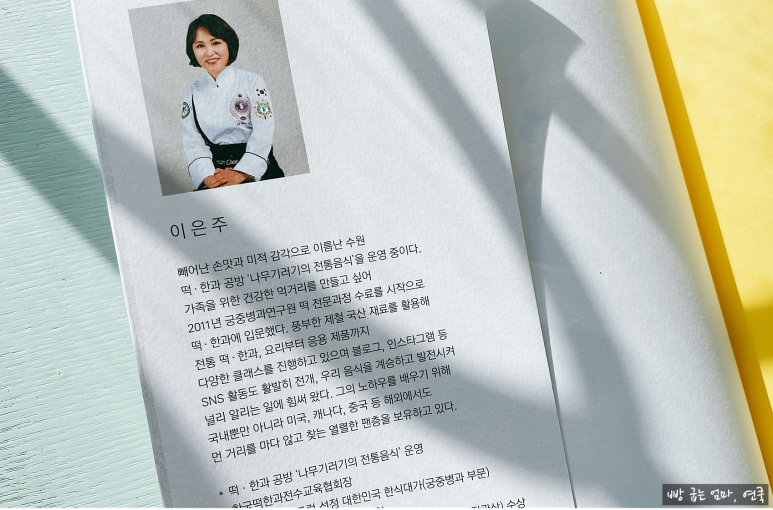 이은주
빼어난 손맛과 미적 감각으로 이름난 수원
떡·한과 공방 '나무기러기의 전통음식'을 운영 중이다.
가족을 위한 건강한 먹거리를 만들고 싶어
2011년 궁중병과연구원 떡 전문과정 수료를 시작으로
떡·한과에 입문했다. 풍부한 제철 국산 재료를 활용해
전통 떡·한과, 요리부터 응용 제품까지
다양한 클래스를 진행하고 있으며 블로그, 인스타그램 등
SNS 활동도 활발히 전개, 우리 음식을 계승하고 발전시켜
널리 알리는 일에 힘써 왔다. 그의 노하우를 배우기 위해
국내뿐만 아니라 미국, 캐나다, 중국 등 해외에서도
먼 거리를 마다 않고 찾는 열렬한 팬층을 보유하고 있다.
• 떡·한과 공방 '나무기러기의 전통음식' 운영
한국떡한과전수교육협회장
선정 대한민국 한식대가(궁중병과 부문)
수상
빵 굽는 엄마, 연쿡